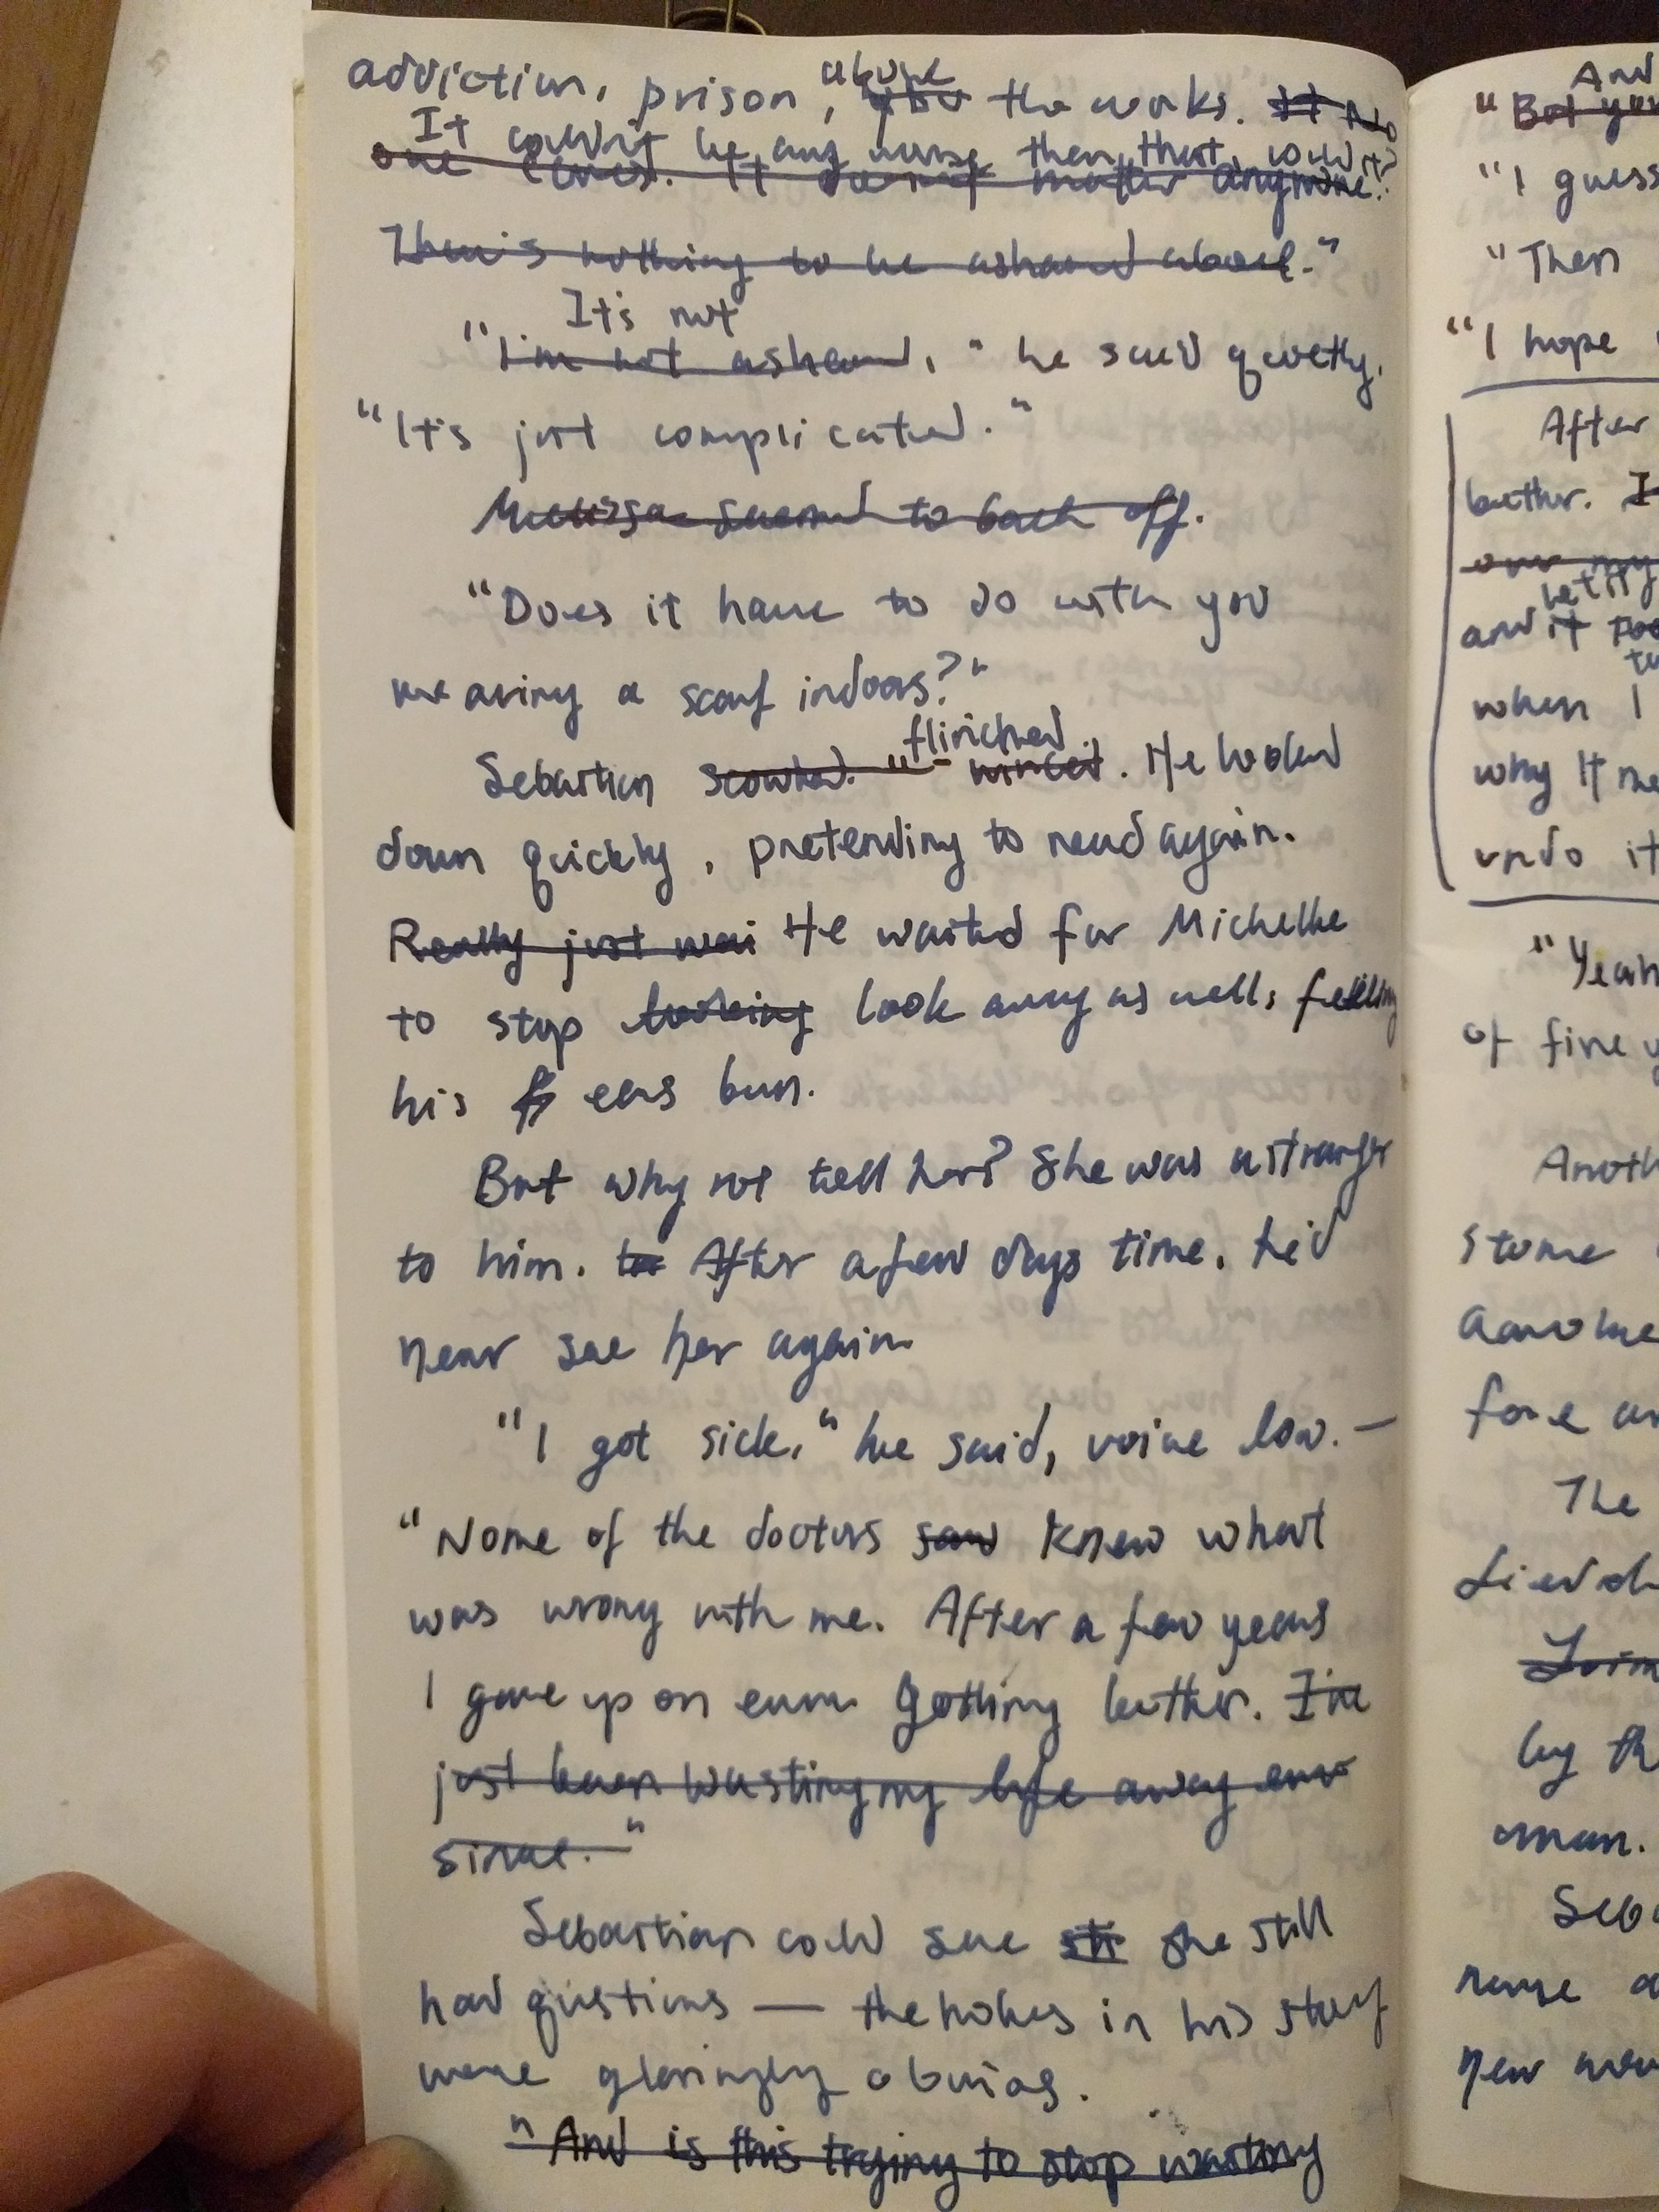 addiction, prison, abuse the works. It No
It couldn't be any worse then that, could it?
one cares. It doesn't matter anymore.
There's nothing to be ashamed about."
It's not
"I'm not ashamed," he said quietly.
"It's just complicated."
Melissa seemed to back off.
"Does it have to do with you
wearing a scarf indoors?"
flinched.
Sebastian scowled. " winced. He looked
down quickly, pretending to read again.
Really just wai He waited for Michelle
to stop looking look away as well, feeling
his ears burn.
But why not tell her? She was a stranger
to him. After a few days time, he'd
never see her again
"I got sick," he said, voice low. —
"None of the doctors saw knew what
was wrong with me. After a few years
I gave up on ever getting better. I've
just been wasting my life away ever
since."
Sebastian could see she still
had questions — the holes in his story
were glaringly obvious.
"And is this trying to stop wasting
And
"But you
"I guess
"Then
"I hope
After
better. I
over my
and it
when I
why it
undo it
"Yeah
of fine
Anoth
stome
fore
The
by th
Seba
new